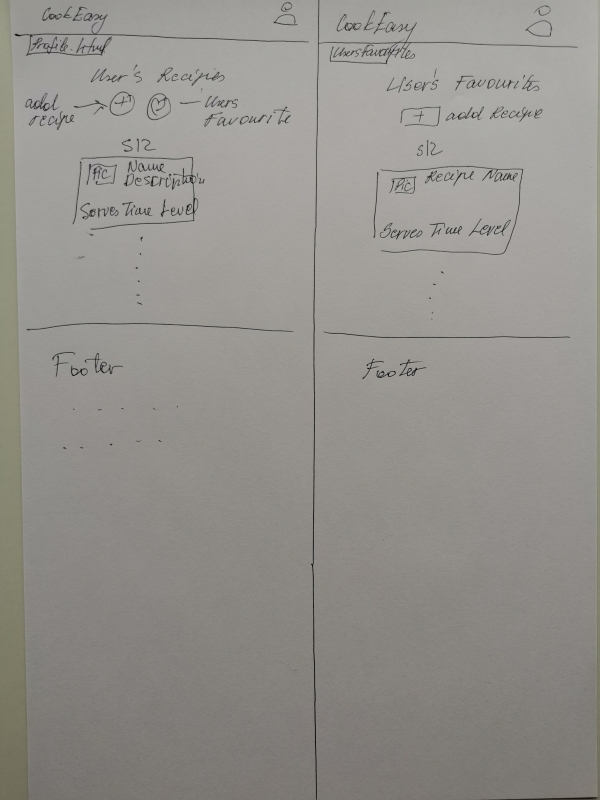 CookEasy
Profile.html
User's Recipies
add recipe
+
Users Favourite
S12
Pic Name
Description
Serves Time Level
Footer
CookEasy
User's Favourites
+ add Recipe
S12
Pic Recipe Name
Serves Time Level
Footer